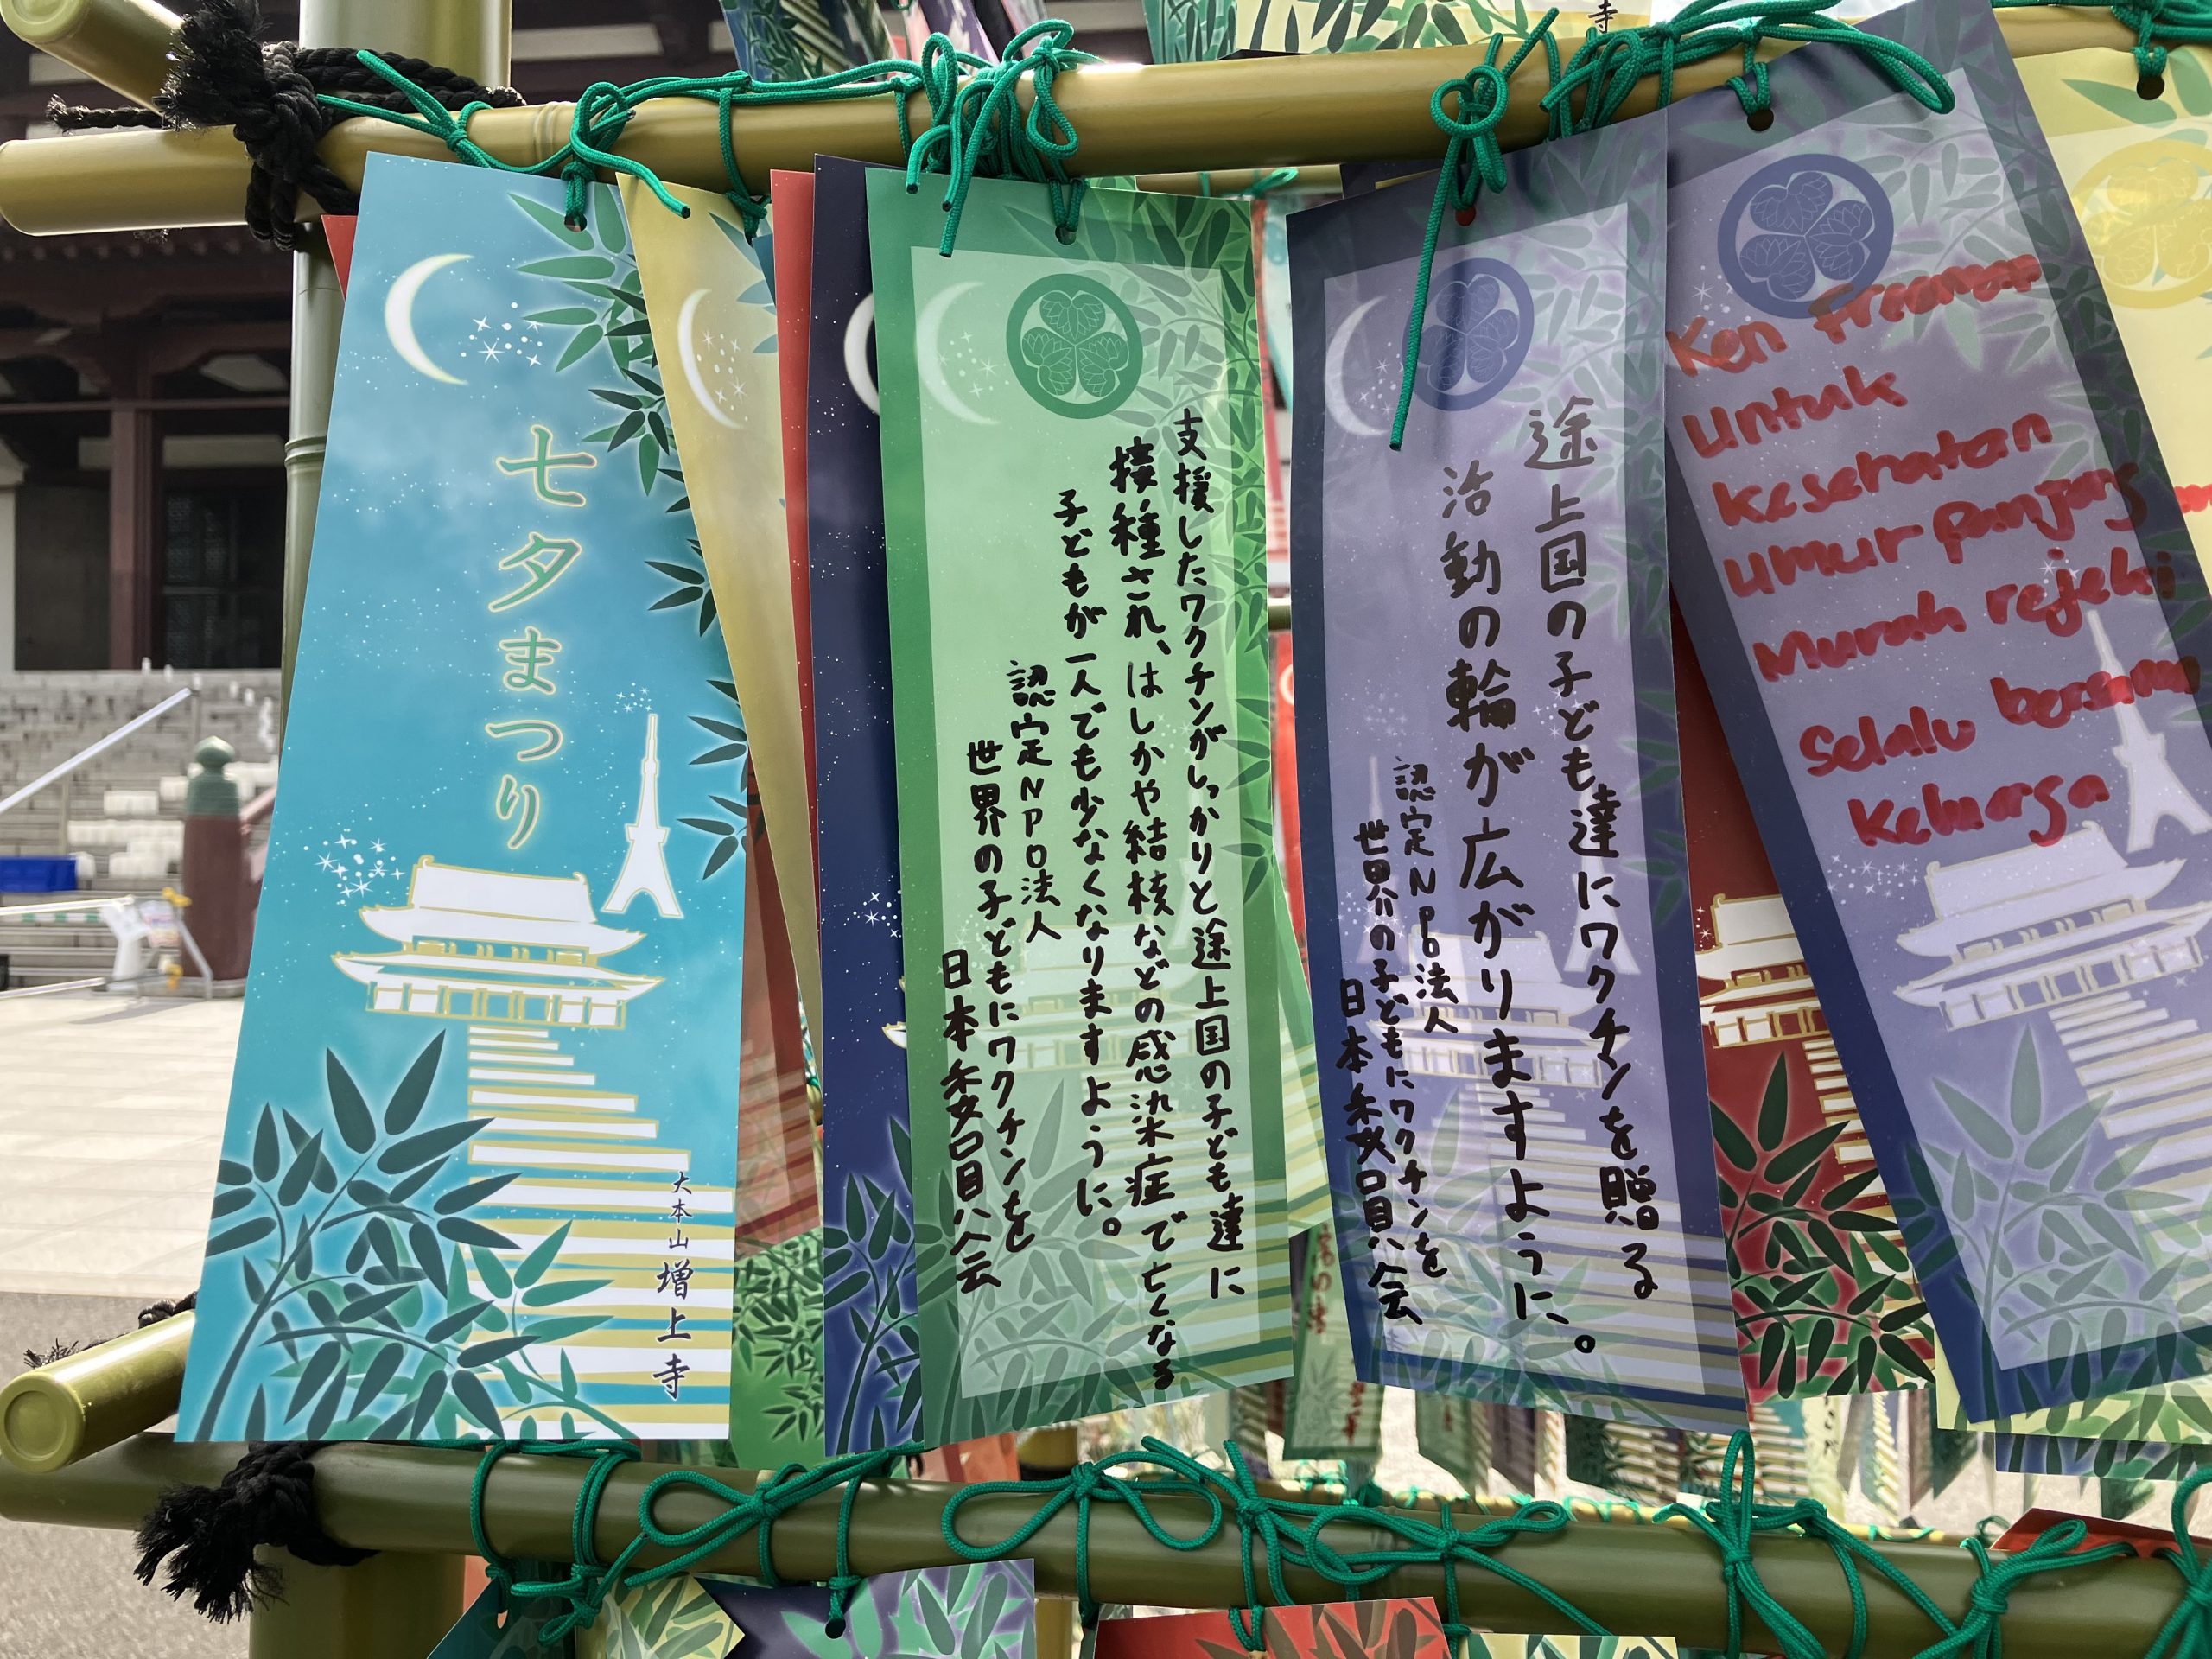 七夕まつり
大本山 増上寺
支援したワクチンがしっかりと途上国の子ども達に
接種され、はしかや結核などの感染症で亡くなる
子どもが一人でも少なくなりますように。
認定NPO法人
世界の子どもにワクチンを
日本委員会
途上国の子ども達にワクチンを贈る
活動の輪が広がりますように。
認定NPO法人
世界の子どもにワクチンを
日本委員会
Ken
Untuk
Kesehatan
Umur Panjang
Murah rejeki
Selalu
Keluarga
寺